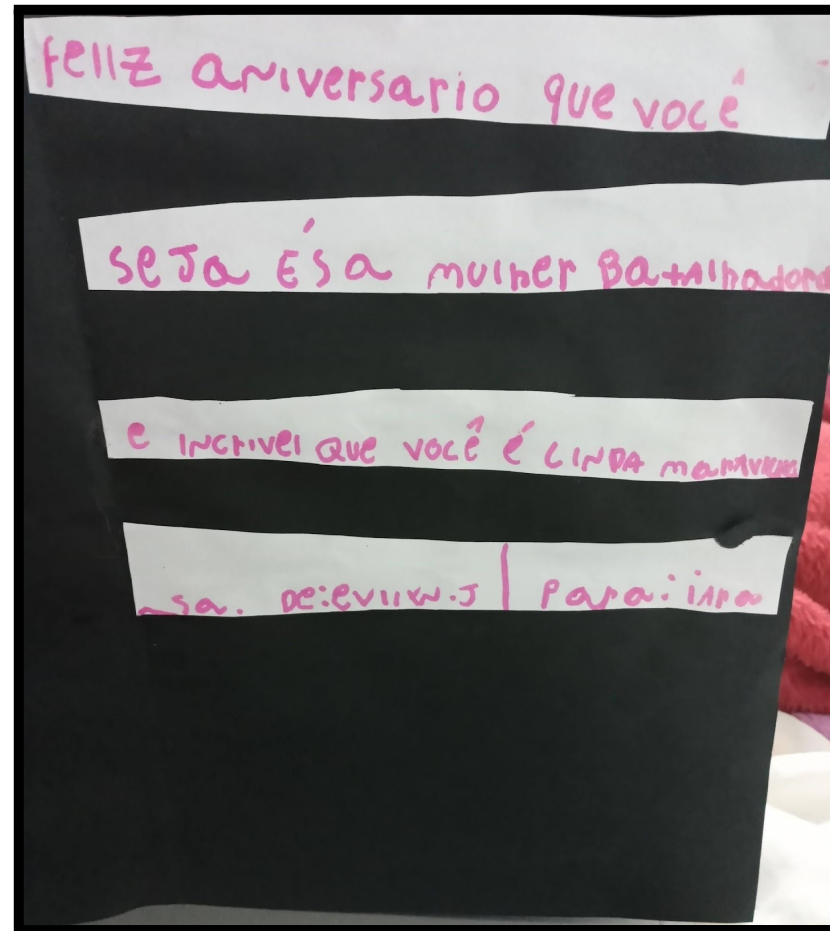 feliz aniversario que você
seja ésa mulher Batalhadora
e incrivel que você é LINDA maravilho
sa. De: | Para: